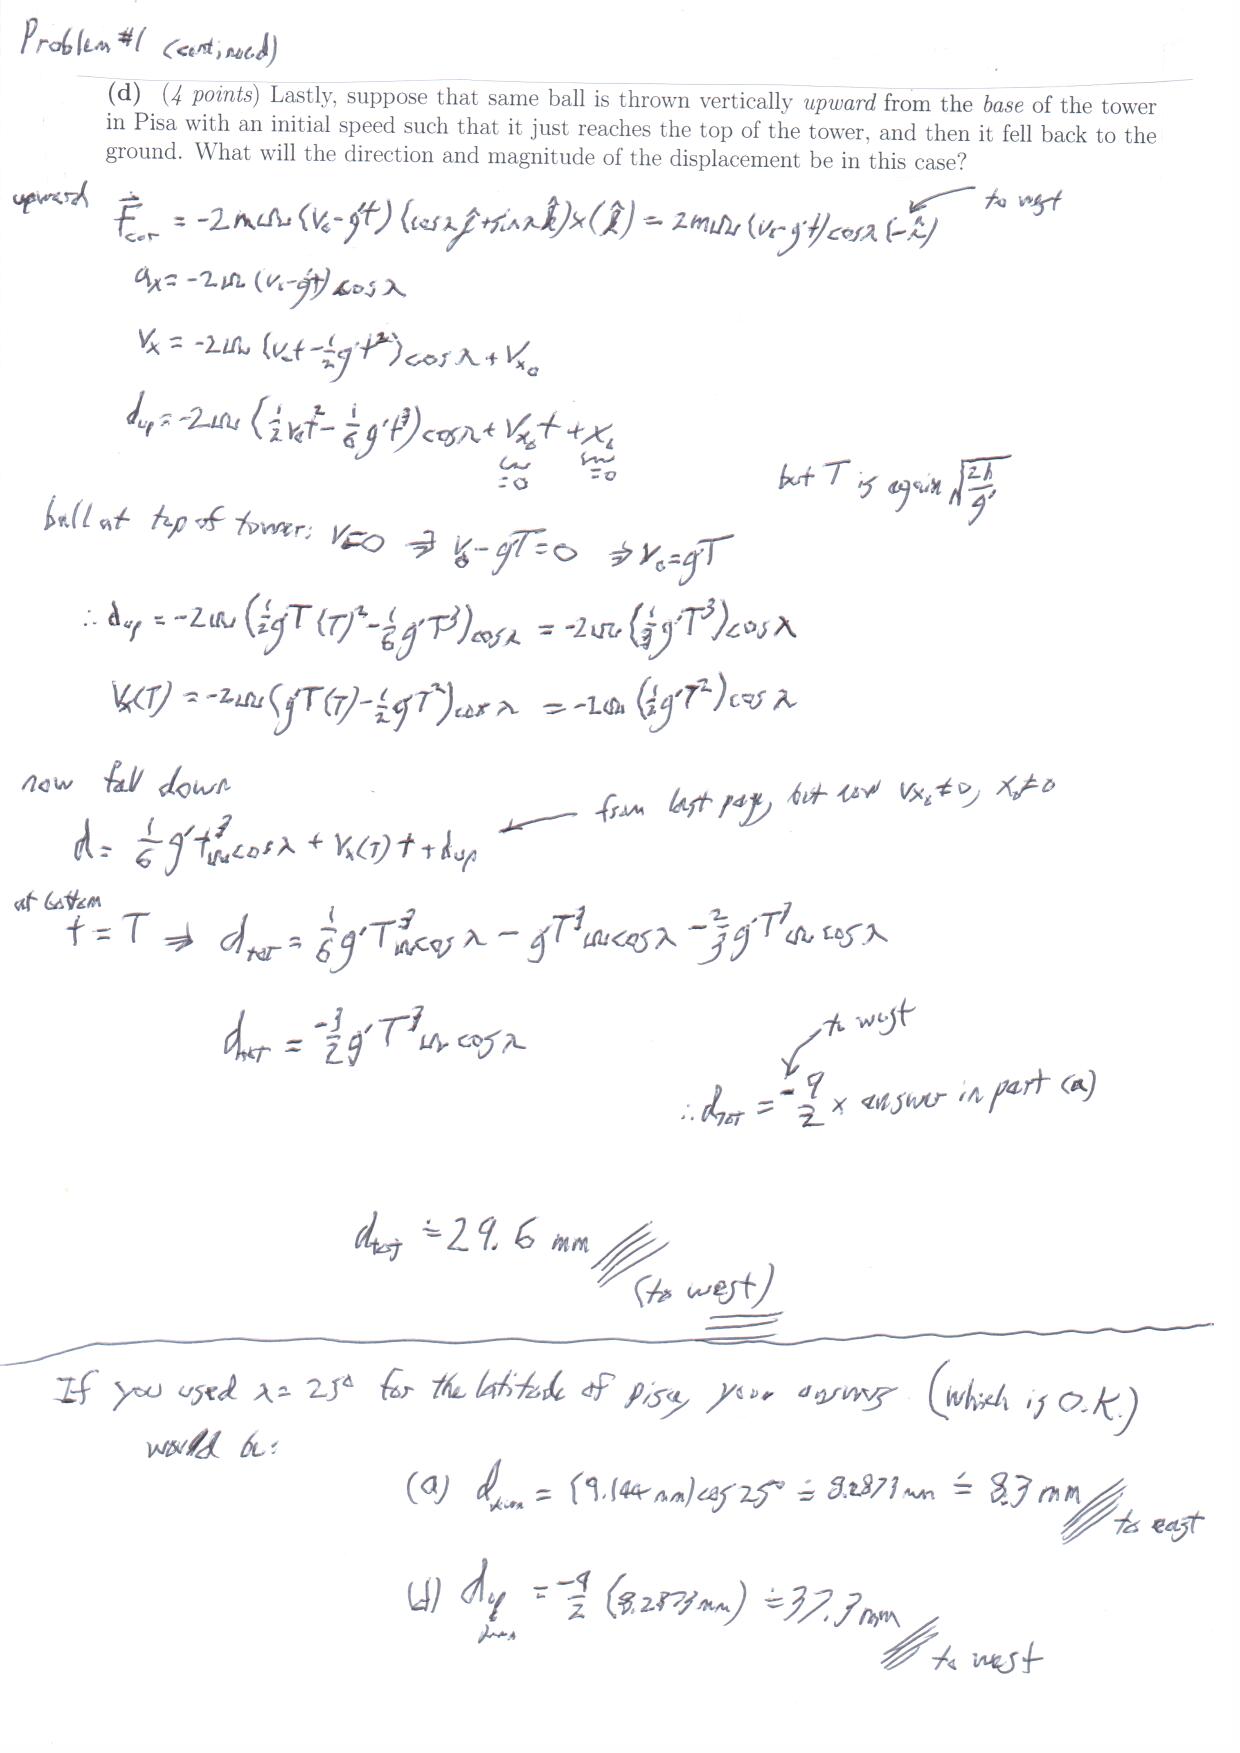 Problem #1 (continued)
(d) (4 points) Lastly, suppose that same ball is thrown vertically upward from the base of the tower
in Pisa with an initial speed such that it just reaches the top of the tower, and then it fell back to the
ground. What will the direction and magnitude of the displacement be in this case?
upward F⃗cor = -2mω(v₀-g't)(cosλ ĵ+sinλ k̂)×(k̂) = 2mω(v₀-g't)cosλ(-î) to west
aₓ = -2ω(v₀-g't)cosλ
Vₓ = -2ω(v₀t-½g't²)cosλ + Vₓ₀
d_up = -2ω(½v₀t²-⅙g't³)cosλ + Vₓ₀t + x₀
=0 =0
but T is again √(2h/g')
ball at top of tower: V=0 ⇒ v₀-gT=0 ⇒ v₀=gT
∴ d_up = -2ω(½gT(T)²-⅙g'T³)cosλ = -2ω(⅓g'T³)cosλ
Vₓ(T) = -2ω(gT(T)-½gT²)cosλ = -2ω(½g'T²)cosλ
now fall down
from last page, but now Vₓ₀≠0, x₀≠0
d = ⅙g't³ωcosλ + Vₓ(T)t + d_up
at bottom
t=T ⇒ d_tot = ⅙g'T³ωcosλ - gT³ωcosλ - ⅔g'T³ωcosλ
d_tot = -3/2 g'T³ωcosλ
to west
∴ d_tot = -9/2 × answer in part (a)
d_tot ≐ 29.6 mm
(to west)
If you used λ=25° for the latitude of Pisa, your answers (which is O.K.)
would be:
(a) d_down = (9.144 mm)cos25° ≐ 8.2873mm ≐ 8.3mm
to east
(d) d_up = -9/2 (8.2873mm) ≐ 37.3mm
to west